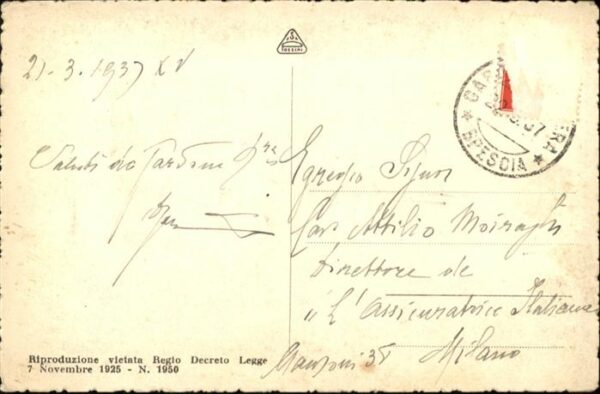 21.3.1937 XV
Saluti da Gardone
Egregio Signor
Cav Attilio Moiraghi
Direttore de
"L'Assicuratrice Italiana
Manzoni 38 Milano
BRESCIA
Riproduzione vietata Regio Decreto Legge
7 Novembre 1925 - N. 1950